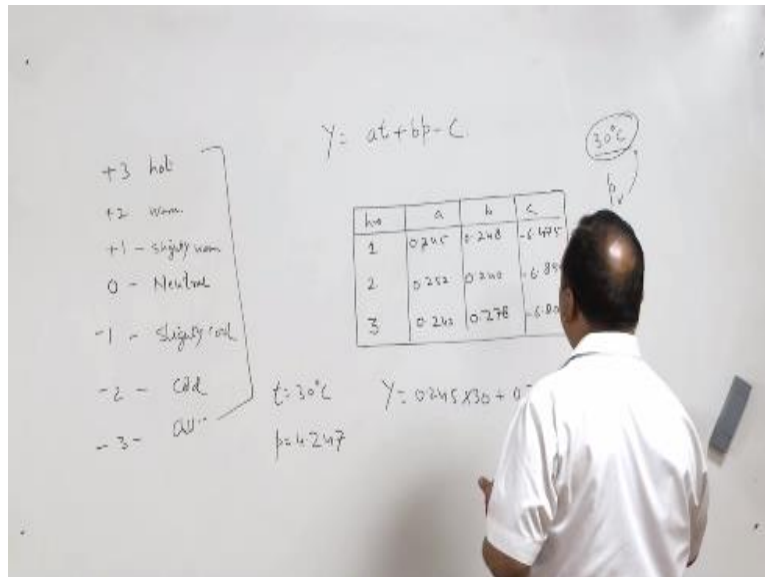 Y = at + bp - C
30°C
+3 hot
+2 warm
+1 - slightly warm
0 - Neutral
-1 - slightly cool
-2 - Cold
-3 -
hrs a b c
1 0.245 0.248 -6.475
2 0.252 0.240 -6.85
3 0.242 0.278 -6.80
t = 30°C
p = 4.247
Y = 0.245 x 30 + 0.2